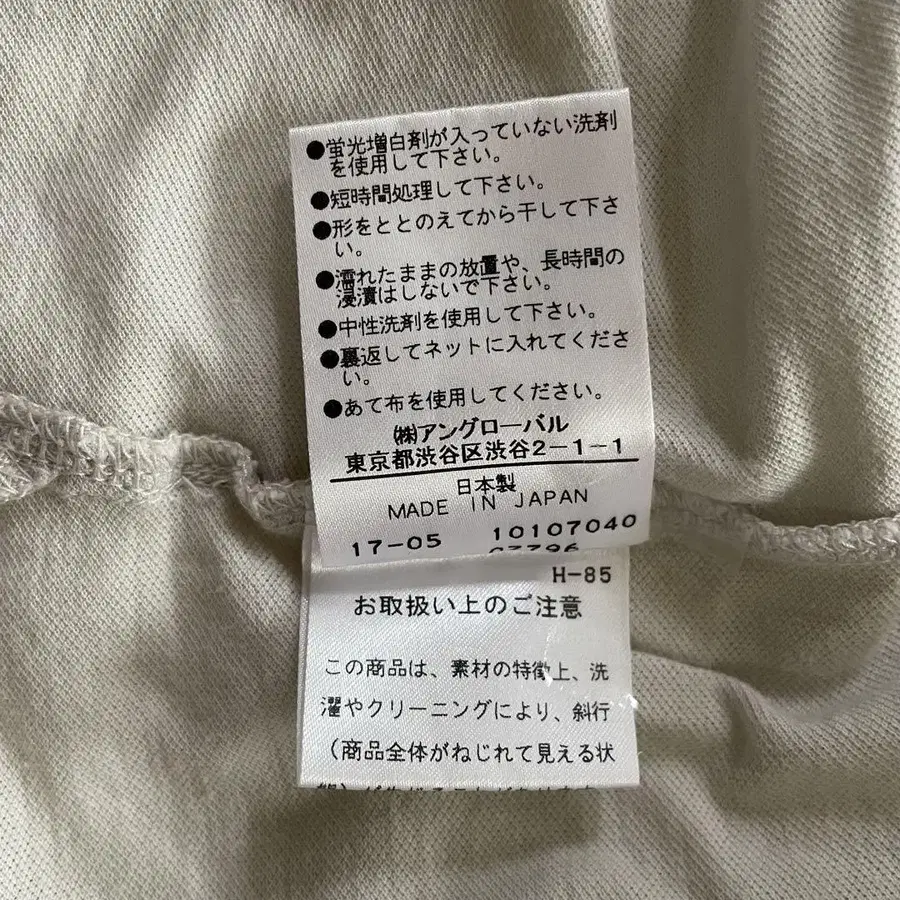 ●蛍光増白剤が入っていない洗剤
を使用して下さい。
●短時間処理して下さい。
●形をととのえてから干して下さ
い。
●濡れたままの放置や、長時間の
浸漬はしないで下さい。
●中性洗剤を使用して下さい。
●裏返してネットに入れてくださ
い。
●あて布を使用してください。
㈱アングローバル
東京都渋谷区渋谷2-1-1
日本製
MADE IN JAPAN
17-05 10107040
H-85
お取扱い上のご注意
この商品は、素材の特徴上、洗
濯やクリーニングにより、斜行
（商品全体がねじれて見える状